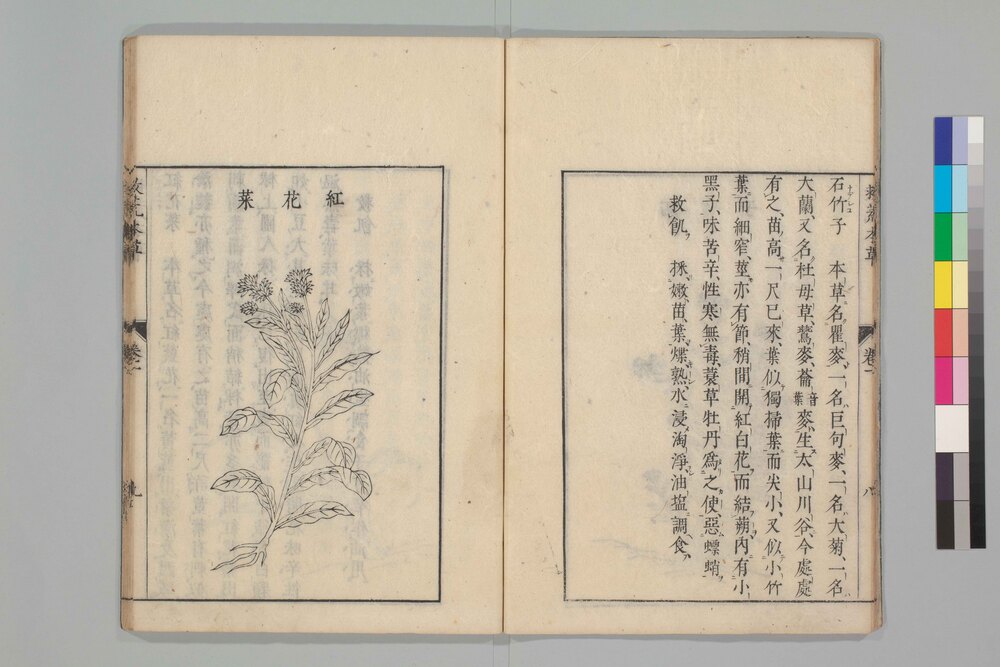 石竹子 本草名瞿麥、一名巨句麥、一名大菊、一名
大蘭、又名杜母草、鷰麥、蘥音葉麥、生太山川谷、今處處
有之、苗高一尺已來、葉似獨掃葉而尖小、又似小竹
葉而細窄、莖亦有節、稍間開紅白花、而結蒴、内有小
黑子、味苦辛、性寒無毒、蓑草牡丹爲之使、惡螵蛸
救飢 採嫩苗葉煠熟、水浸淘淨、油塩調食、
卷一
八
紅花菜
卷一
九